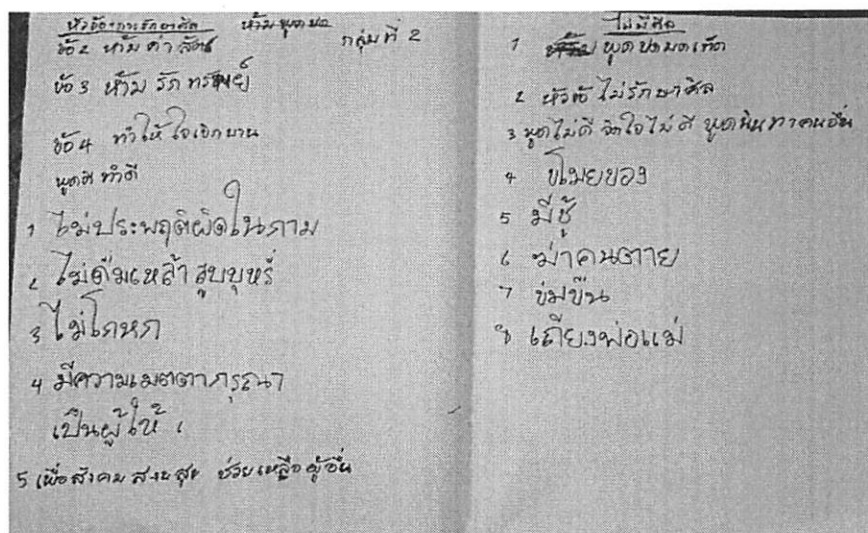 หัวข้อการรักษาศีล ห้ามพูดปด
กลุ่มที่ 2
ข้อ 2 ห้าม ค่า สัตว์
ข้อ 3 ห้าม รัก ทรัพย์
ข้อ 4 ทำให้ ใจเบิกบาน
พูดดี ทำดี
1 ไม่ประพฤติผิดในกาม
2 ไม่ดื่มเหล้า สูบบุหรี่
3 ไม่โกหก
4 มีความเมตตากรุณา
เป็นผู้ให้
5 เพื่อสังคม สงบสุข ช่วยเหลือผู้อื่น
ไม่มีศีล
1 พูดปดมดเท็จ
2 หัวข้อ ไม่รักษาศีล
3 พูดไม่ดี จิตใจไม่ดี พูดนินทาคนอื่น
4 ขโมยของ
5 มีชู้
6 ฆ่าคนตาย
7 ข่มขืน
8 เถียงพ่อแม่